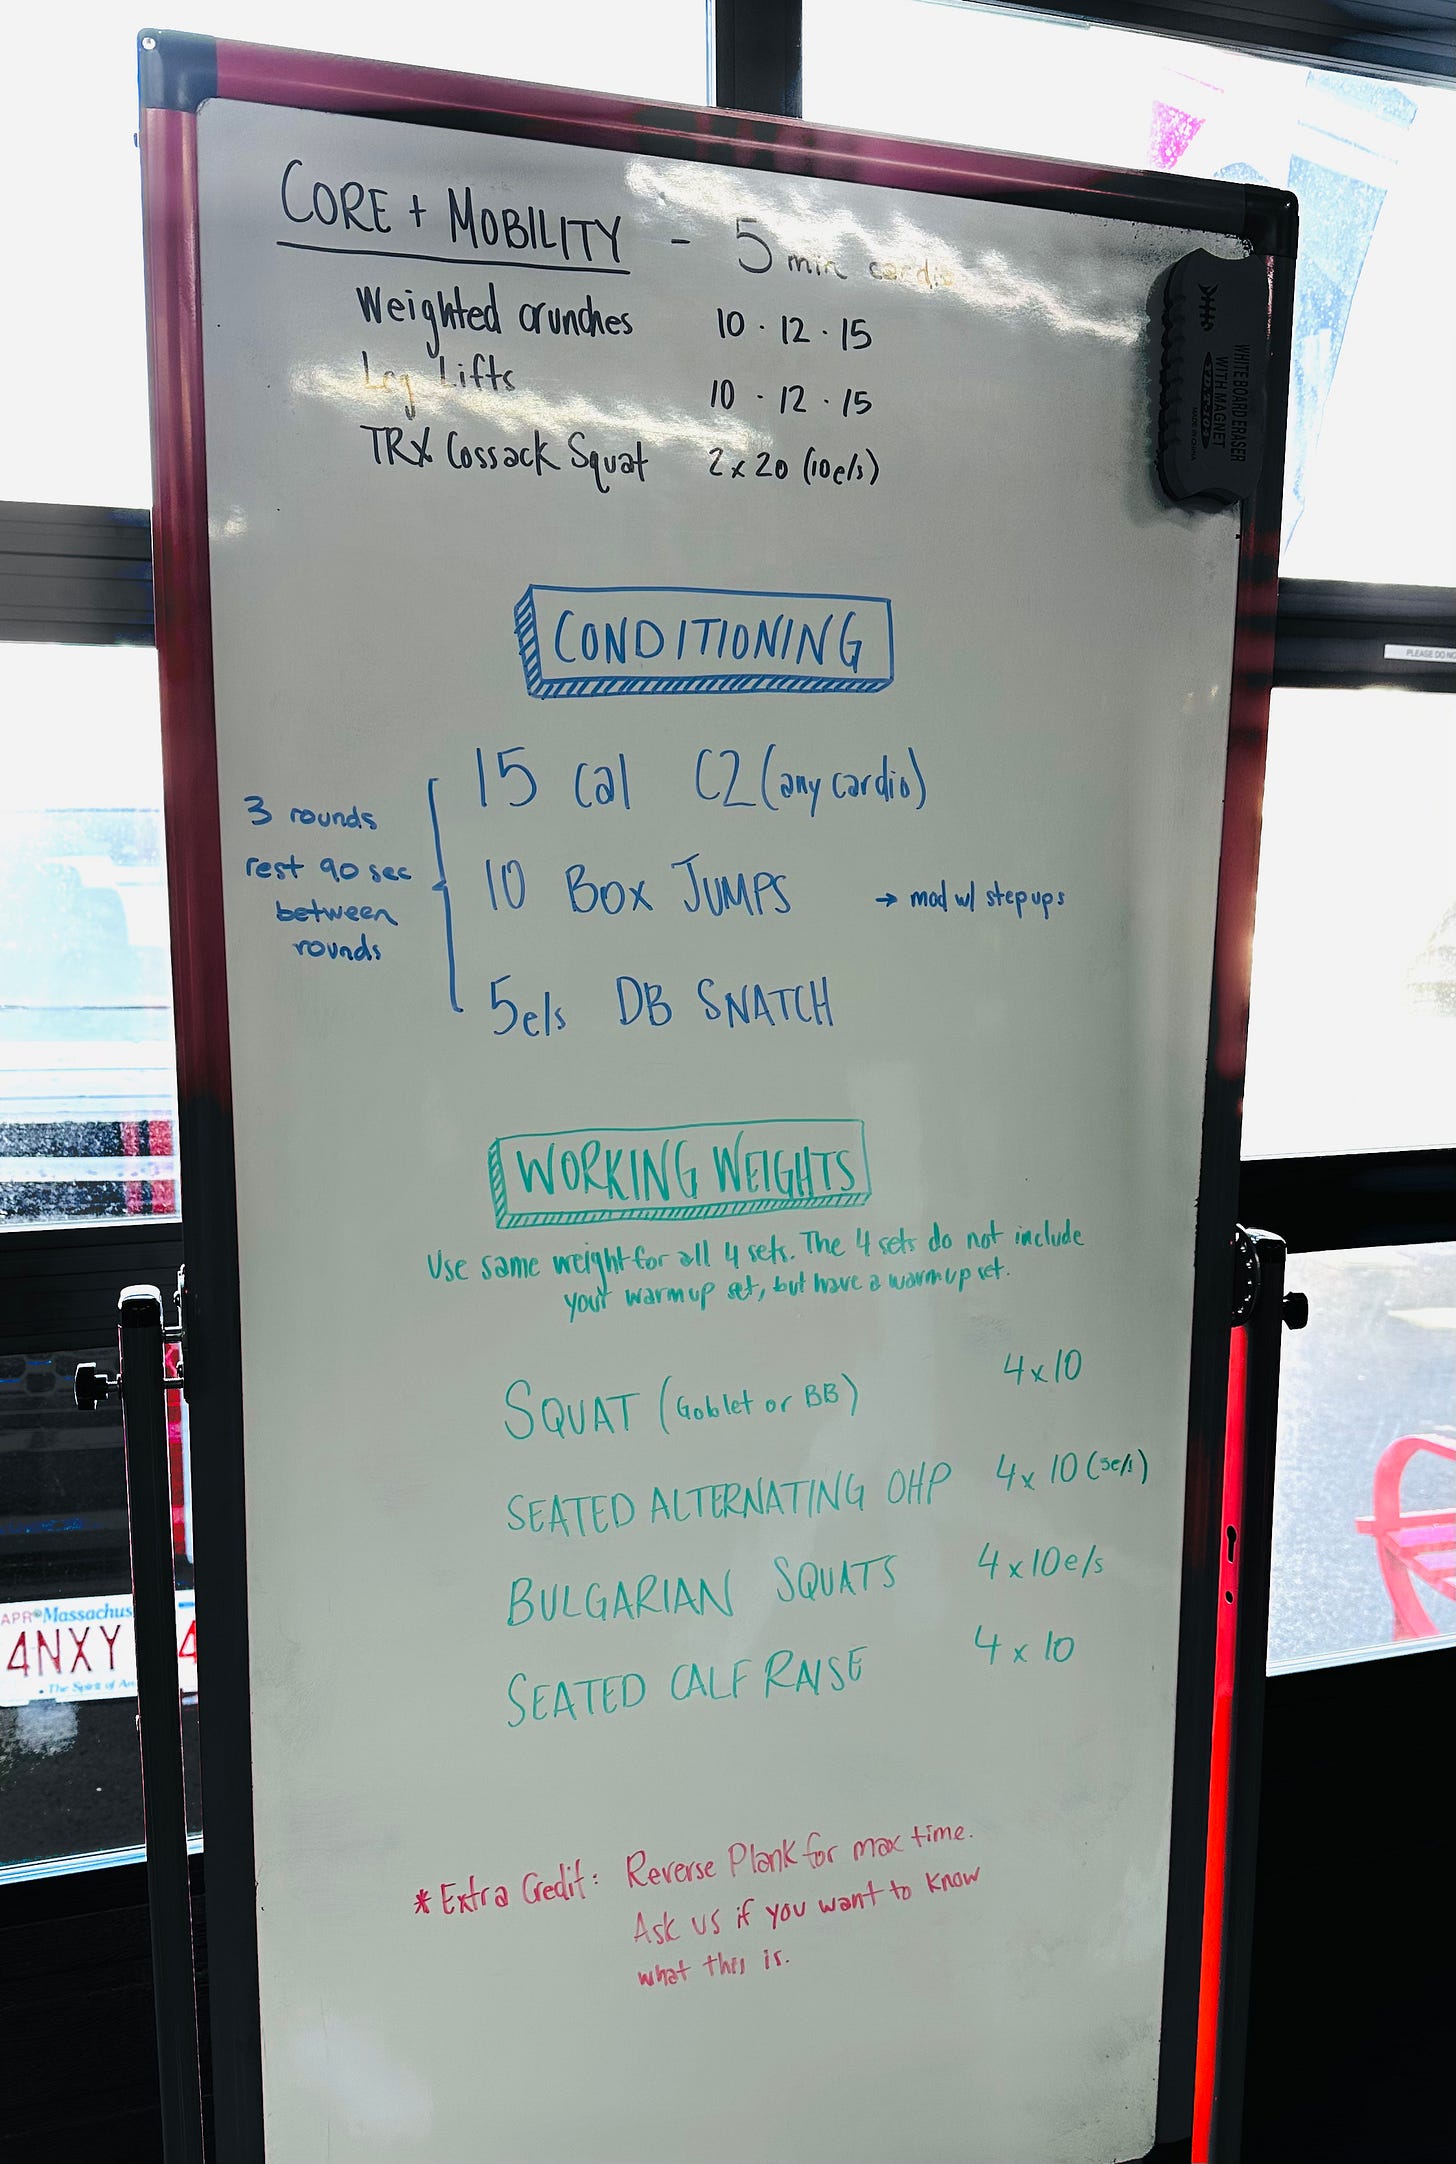 CORE + MOBILITY - 5 min cardio
Weighted crunches 10 · 12 · 15
Leg Lifts 10 · 12 · 15
TRX Cossack Squat 2 x 20 (10e/s)
WHITE BOARD ERASER
WITH MAGNET
MADE IN CHINA
PLEASE DO NO
CONDITIONING
3 rounds
rest 90 sec
between
rounds
15 cal C2 (any cardio)
10 BOX JUMPS → mod w/ step ups
5e/s DB SNATCH
WORKING WEIGHTS
Use same weight for all 4 sets. The 4 sets do not include
your warmup set, but have a warmup set.
SQUAT (Goblet or BB) 4 x 10
SEATED ALTERNATING OHP 4 x 10 (5e/s)
BULGARIAN SQUATS 4 x 10 e/s
SEATED CALF RAISE 4 x 10
APR Massachus
4NXY 4
The Spirit of Am
* Extra Credit: Reverse Plank for max time.
Ask us if you want to know
what this is.